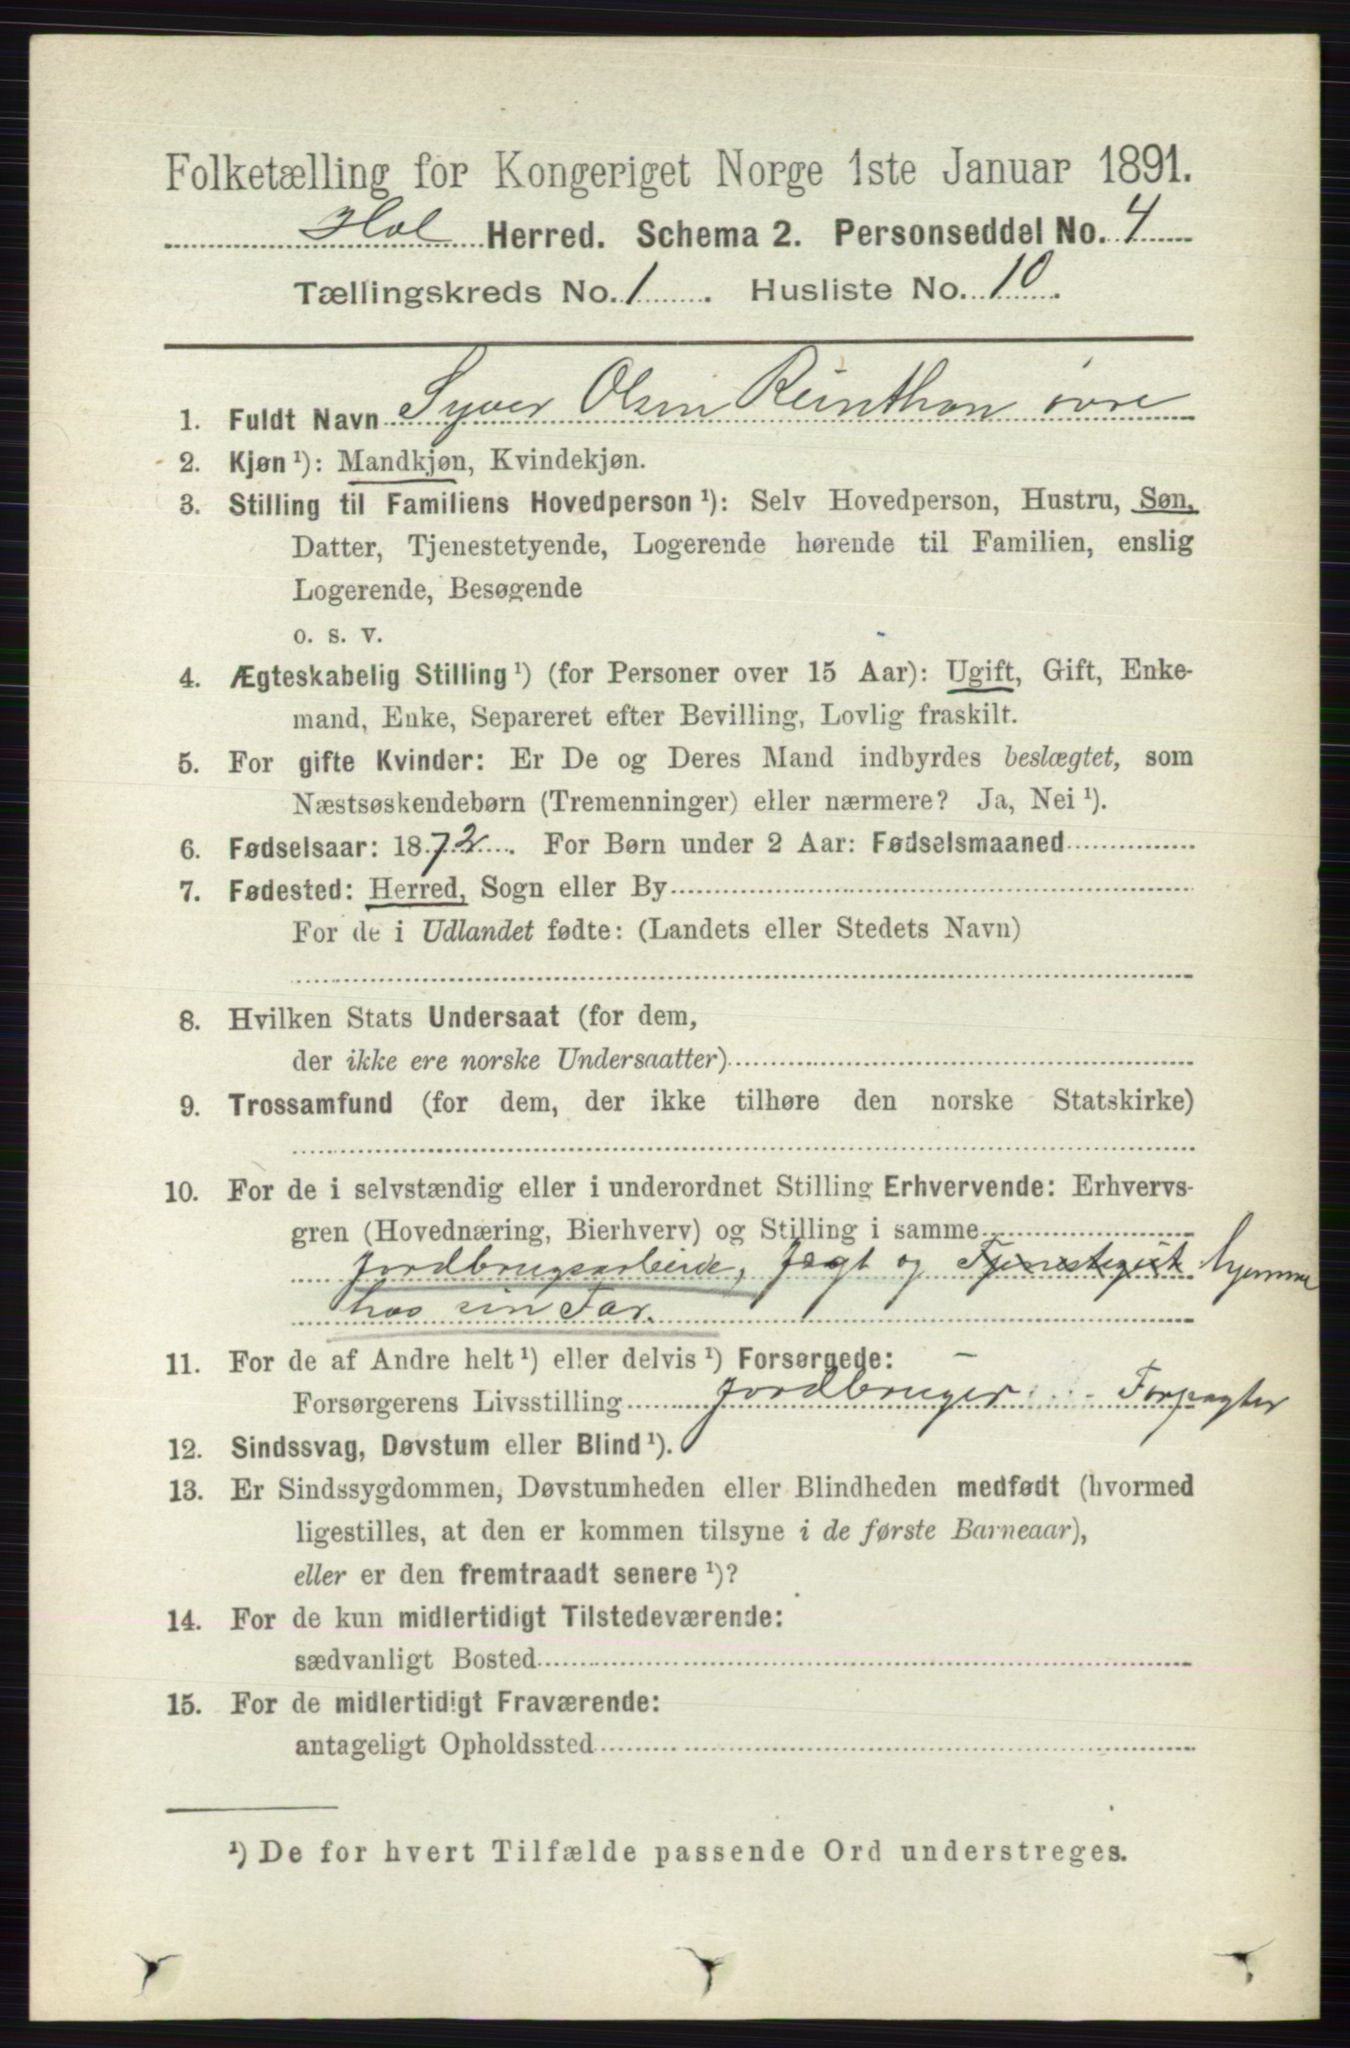 Folketælling for Kongeriget Norge 1ste Januar 1891.
Hol Herred. Schema 2. Personseddel No. 4
Tællingskreds No. 1. Husliste No. 10.
1. Fuldt Navn Syver Olsen Reinthon øvre
2. Kjøn ¹): Mandkjøn, Kvindekjøn.
3. Stilling til Familiens Hovedperson ¹): Selv Hovedperson, Hustru, Søn,
Datter, Tjenestetyende, Logerende hørende til Familien, enslig
Logerende, Besøgende
o. s. v.
4. Ægteskabelig Stilling ¹) (for Personer over 15 Aar): Ugift, Gift, Enke-
mand, Enke, Separeret efter Bevilling, Lovlig fraskilt.
5. For gifte Kvinder: Er De og Deres Mand indbyrdes beslægtet, som
Næstsøskendebørn (Tremenninger) eller nærmere? Ja, Nei ¹).
6. Fødselsaar: 1872. For Børn under 2 Aar: Fødselsmaaned
7. Fødested: Herred, Sogn eller By
For de i Udlandet fødte: (Landets eller Stedets Navn)
8. Hvilken Stats Undersaat (for dem,
der ikke ere norske Undersaatter)
9. Trossamfund (for dem, der ikke tilhøre den norske Statskirke)
10. For de i selvstændig eller i underordnet Stilling Erhvervende: Erhvervs-
gren (Hovednæring, Bierhverv) og Stilling i samme
Jordbrugsarbeide, Jagt og hjemme
hos sin Far.
11. For de af Andre helt ¹) eller delvis ¹) Forsørgede: –
Forsørgerens Livsstilling Jordbruger Forpagter
12. Sindssvag, Døvstum eller Blind ¹).
13. Er Sindssygdommen, Døvstumheden eller Blindheden medfødt (hvormed
ligestilles, at den er kommen tilsyne i de første Barneaar),
eller er den fremtraadt senere ¹)?
14. For de kun midlertidigt Tilstedeværende:
sædvanligt Bosted
15. For de midlertidigt Fraværende:
antageligt Opholdssted
¹) De for hvert Tilfælde passende Ord understreges.